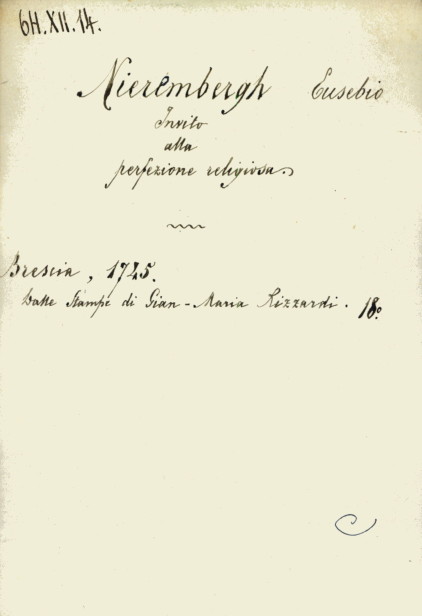 6H.XII.14.
Nierembergh Eusebio
Invito
alla
perfezione religiosa.
Brescia, 1745.
Dalle Stampe di Gian-Maria Rizzardi. 18º